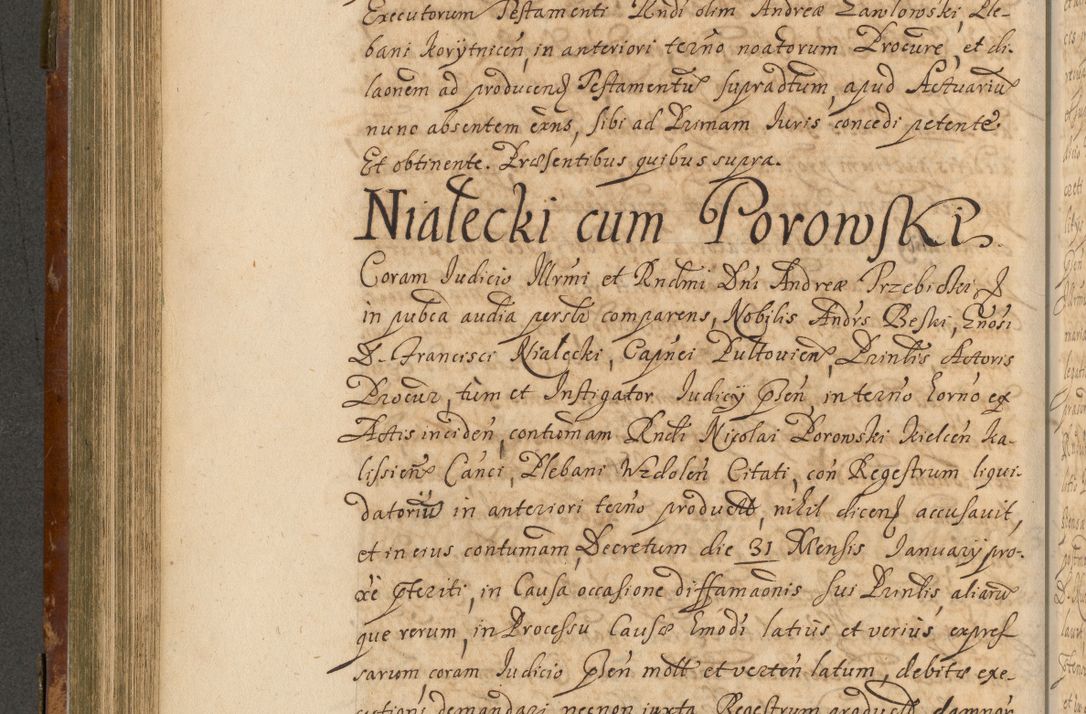 Executorum Testamenti Rndi olim Andreæ Zawłowski, Ple-
bani Korytnicen, in anteriori termo noatorum Procure, et di-
laonem ad producend Testamentu supradtum, apud Actuariu
nunc absentem exns, sibi ad Primam Iuris concedi petente.
Et obtinente. Præsentibus quibus supra.
Niałecki cum Porowski.
Coram Iudicio Illrmi et Rndmi Dni Andreæ Trzebicki
in pubca audia perslr comparens, Nobilis Andrs Beski, Gnosi
D. Francisci Niałecki, Capnei Pultovien, Prinlis Actoris
Procur, tum et Instigator Iudicij psen in termo horno ex
Actis inciden, contumam Rndi Nicolai Porowski Kielcen Ka-
lissien Canci, Plebani Wzdolen Citati, con Regestrum liqui-
datoriu in anteriori termo product, nihil dicend accusavit,
et in eius contumam, Decretum die 31 Mensis Ianuarij pro-
xe pteriti, in Causa occasione diffamaonis sui Prinlis, aliaru
que rerum, in Processu Causæ hmodi latius et verius expres-
sarum coram Iudicio psen mott et verten latum, debitæ exe-
cutioni demandari necnon iuxta Regestrum product damnor